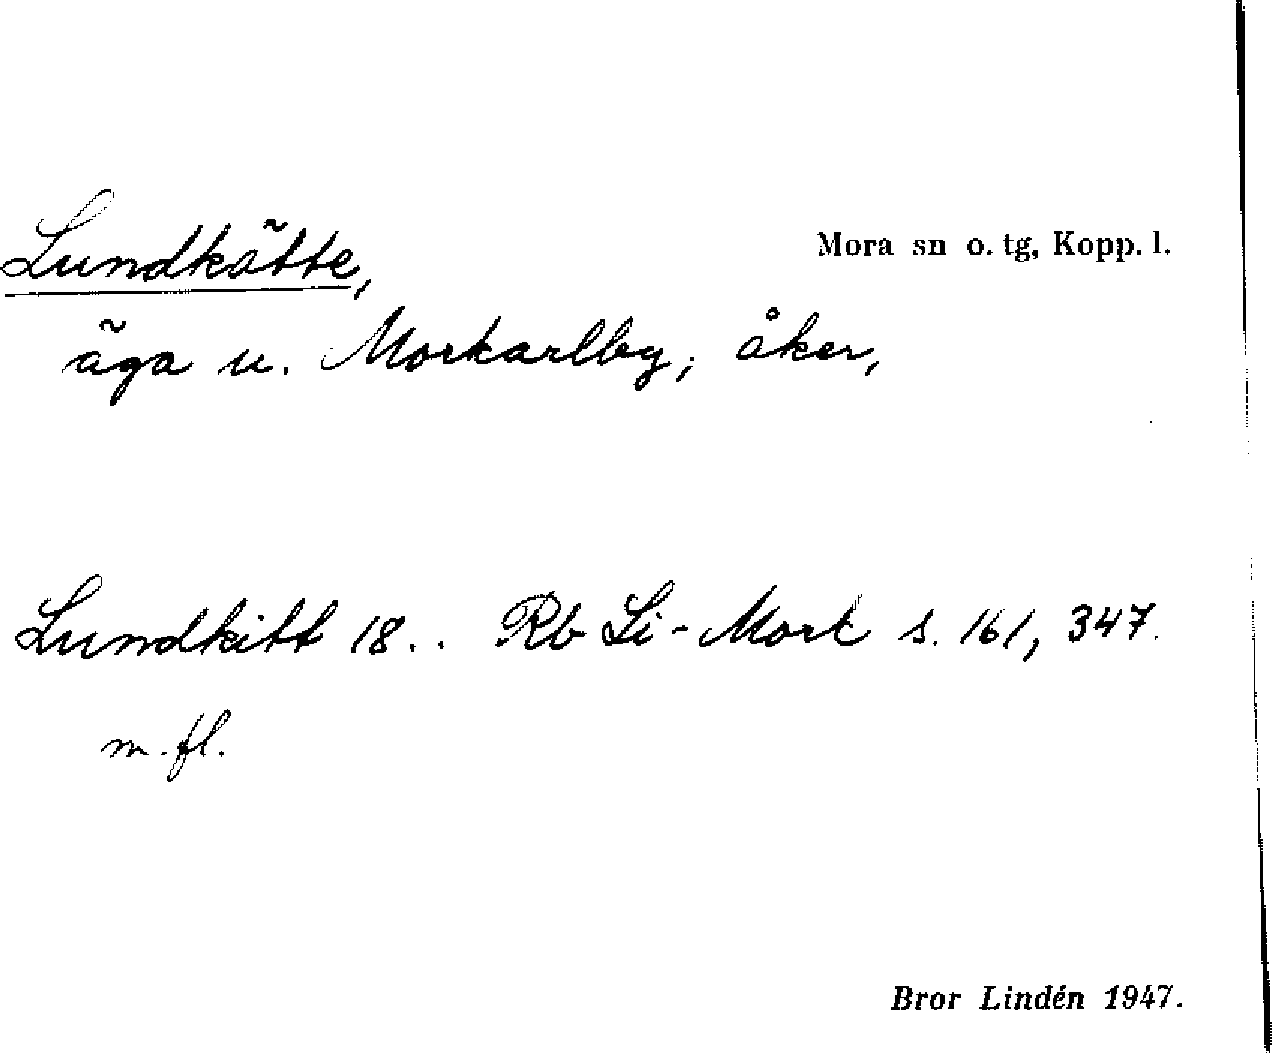 Lundkätte, Mora sn o. tg, Kopp. l.
äga u. Morkarlby; åker,
Lundkitt 18.. Rb Li-Mork s. 161, 347.
m.fl.
Bror Lindén 1947.